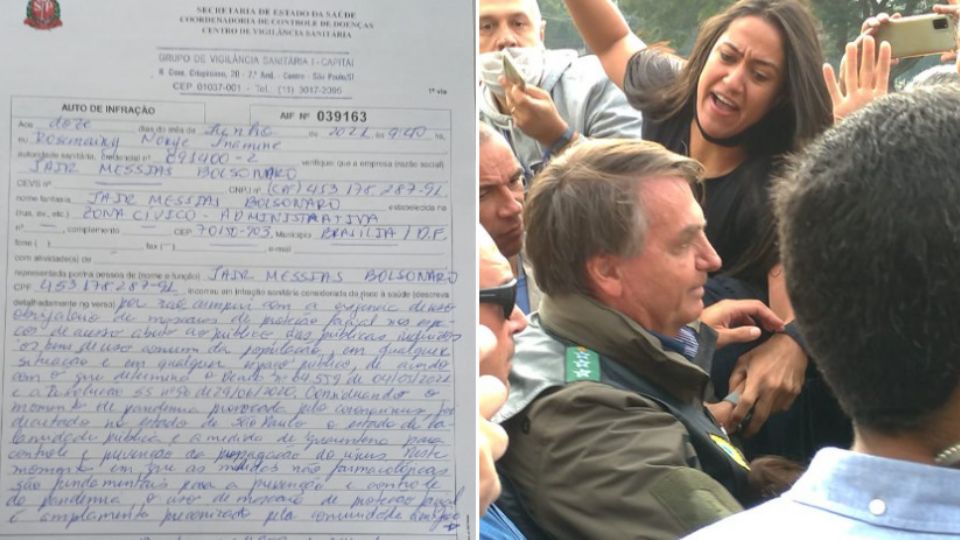 SECRETARIA DE ESTADO DA SAÚDE
COORDENADORIA DE CONTROLE DE DOENÇAS
CENTRO DE VIGILÂNCIA SANITÁRIA
GRUPO DE VIGILÂNCIA SANITÁRIA I - CAPITAL
R. Cons. Crispiniano, 20 - 7.º And. - Centro - São Paulo/SP
CEP 01037-001 - Tel. (11) 3017-2395
1ª via
AUTO DE INFRAÇÃO AIF Nº 039163
Aos doze dias do mês de Junho de 2021 às 9:40 hs,
eu
autoridade sanitária, credencial nº 691400-2 verifiquei que a empresa (razão social)
JAIR MESSIAS BOLSONARO
CEVS nº CNPJ nº (CPF) 453 178 287-91
nome fantasia JAIR MESSIAS BOLSONARO estabelecida na
(rua, av., etc.) ZONA CÍVICO-ADMINISTRATIVA
nº , complemento CEP 70150-903, Município BRASÍLIA / D.F.
fone ( ) fax ( ) e-mail
com atividade(s) de
representada por/na pessoa de (nome e função) JAIR MESSIAS BOLSONARO
CPF 453 178 287-91 incorreu em infração sanitária considerada de risco à saúde (descreva
detalhadamente no verso) por não cumprir com a exigência de uso
obrigatório de máscaras de proteção facial nos espa-
ços de acesso aberto ao público
os bens de uso comum da população, em qualquer
situação e em qualquer espaço público, de acordo
com o que determina o Decreto nº 64.959 de 04/05/2020
e a Resolução SS nº 96 de 29/06/2020. Considerando o
momento de pandemia provocada pelo coronavírus, foi
decretado no estado de São Paulo o estado de ca-
lamidade pública e a medida de quarentena para
controle e prevenção da propagação do vírus. Neste
momento em que as medidas não farmacológicas
são fundamentais para a prevenção e controle
da pandemia o uso de máscara de proteção facial
é amplamente preconizado pela comunidade